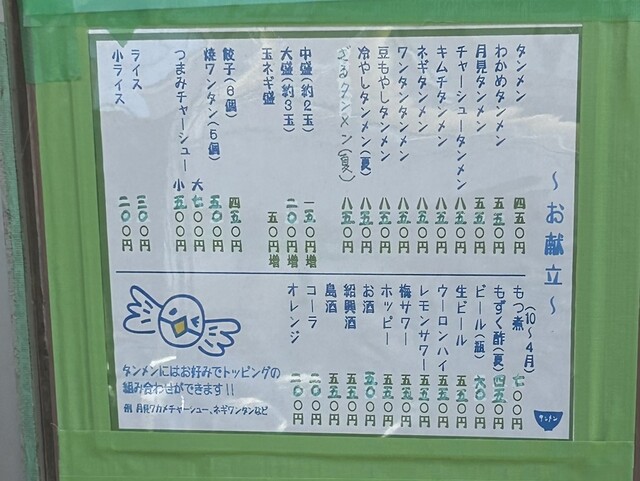 ～お献立～
タンメン 四五〇円
わかめタンメン 五五〇円
月見タンメン 五五〇円
チャーシュータンメン 八五〇円
キムチタンメン 八五〇円
ネギタンメン 八五〇円
ワンタンタンメン 八五〇円
豆もやしタンメン 八五〇円
冷やしタンメン(夏) 八五〇円
ざるタンメン(夏) 八五〇円
中盛(約2玉) 一五〇円増
大盛(約3玉) 二〇〇円増
玉ネギ盛 五〇円増
餃子(6個) 四五〇円
焼ワンタン(5個) 五〇〇円
つまみチャーシュー 大 七〇〇円
小 五〇〇円
ライス 三〇〇円
小ライス 二〇〇円
もつ煮(10～4月) 七〇〇円
もずく酢(夏) 四五〇円
ビール(瓶) 六〇〇円
生ビール 五五〇円
ウーロンハイ 五五〇円
レモンサワー 五五〇円
梅サワー 五五〇円
ホッピー 五五〇円
お酒 五〇〇円
紹興酒 五五〇円
島酒 五五〇円
コーラ 二〇〇円
オレンジ 二〇〇円
タンメンにはお好みでトッピングの
組み合わせができます!!
例 月見ワカメチャーシュー、ネギワンタンなど
タンメン